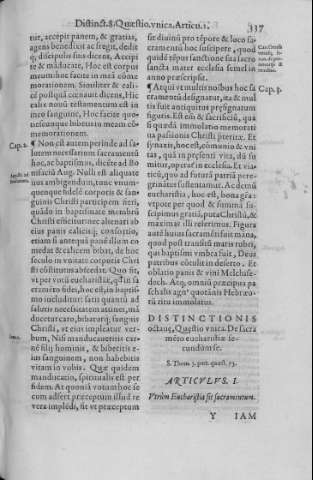 Distinct.8. Quæstio.vnica.Articu.1.
337
tur, accepit panem, & gratias,
agens benedixit ac fregit, dedit
q́; discipulis suis dicens, Accipi
te & māducate, Hoc est corpus
meum hoc facite in meā cōme
morationem. Similiter & cali-
cē postquā cœnauit dicens, Hic
calix nouū testamentum est in
meo sanguine, Hoc facite quo-
tiescunque bibetis in meam cō-
memorationem.
Cap. 2.
¶ Non est autem perinde ad sa-
lutem necessarium sacramentū
hoc, ac baptismus, dicēte ad Bo
nifaciū Aug. Nulli est aliquate
nus ambigendum, tunc vnum-
quemque fidelē corporis & san
guinis Christi participem fieri,
quādo in baptismate membrū
Christi efficitur: nec alienari ab
eius panis calicisq́; consortio,
etiam si antequā panē illum co
medat & calicem bibat, de hoc
seculo in vnitate corporis Chri
sti cōstitutus abscedat. Quo fit,
vt per votū eucharistiæ, qđ us sa
cramēto fidei, hoc est, in baptis-
mo includitur: satis quantū ad
salutis necessitatem attinet, mā
ducetur caro, bibaturq́; sanguis
Christi, vt eius impleatur ver-
bum, Nisi manducaueritis car
nē filij hominis, & biberitis e-
ius sanguinem, non habebitis
vitam in vobis. Quæ quidem
manducatio, spiritualis est per
fidem. At quoniā votum hoc se
cum adfert præceptum illud re
vera implēdi, fit vt præceptum
sit diuinū pro tēpore & loco sa-
cramentū hoc suscipere, quod
quidē tēpus sanctione sua sacro
sancta mater ecclesia semel in
anno præscripsit.
Cap. 3.
¶ Atquì vt multis nobis hoc sa
cramentū designatur, ita & mul
tis fuit antiquitus præsignatum
figuris. Est eni & sacrificiū, qua
si quædā immolatio memorati
ua passionis Christi preteritæ. Et
synaxis, hoc est, cōmunio & vni
tas, quā in presenti vita, dū su-
mitur, operat̄ in ecclesia. Et viati
cū, quo ad futurā patriā pere-
grinātes sustentamur. Ac demū
eucharistia, hoc est, bona grā:
vtpote per quod & summū su-
scipimus gratiā, puta Christū, &
maximæ illi referimus. Figuræ
autē huius sacramēti fuit mana,
quod post transitū maris rubri,
qui baptismi vmbra fuit, Deus
patribus cōtulit in deserto. Et
oblatio panis & vini Melchise-
dech. Atq; omniū præcipua pa
schalis agn⁹ quotānis Hebræo-
rū ritu immolatus.
DISTINCTIONIS
octauæ, Quæstio vnica. De sacra
mēto eucharistiæ se-
cundum se.
S. Thom. 3. part. quæst. 73.
ARTICVLVS. I.
Vtrùm Eucharistia sit sacramentum.
Y IAM